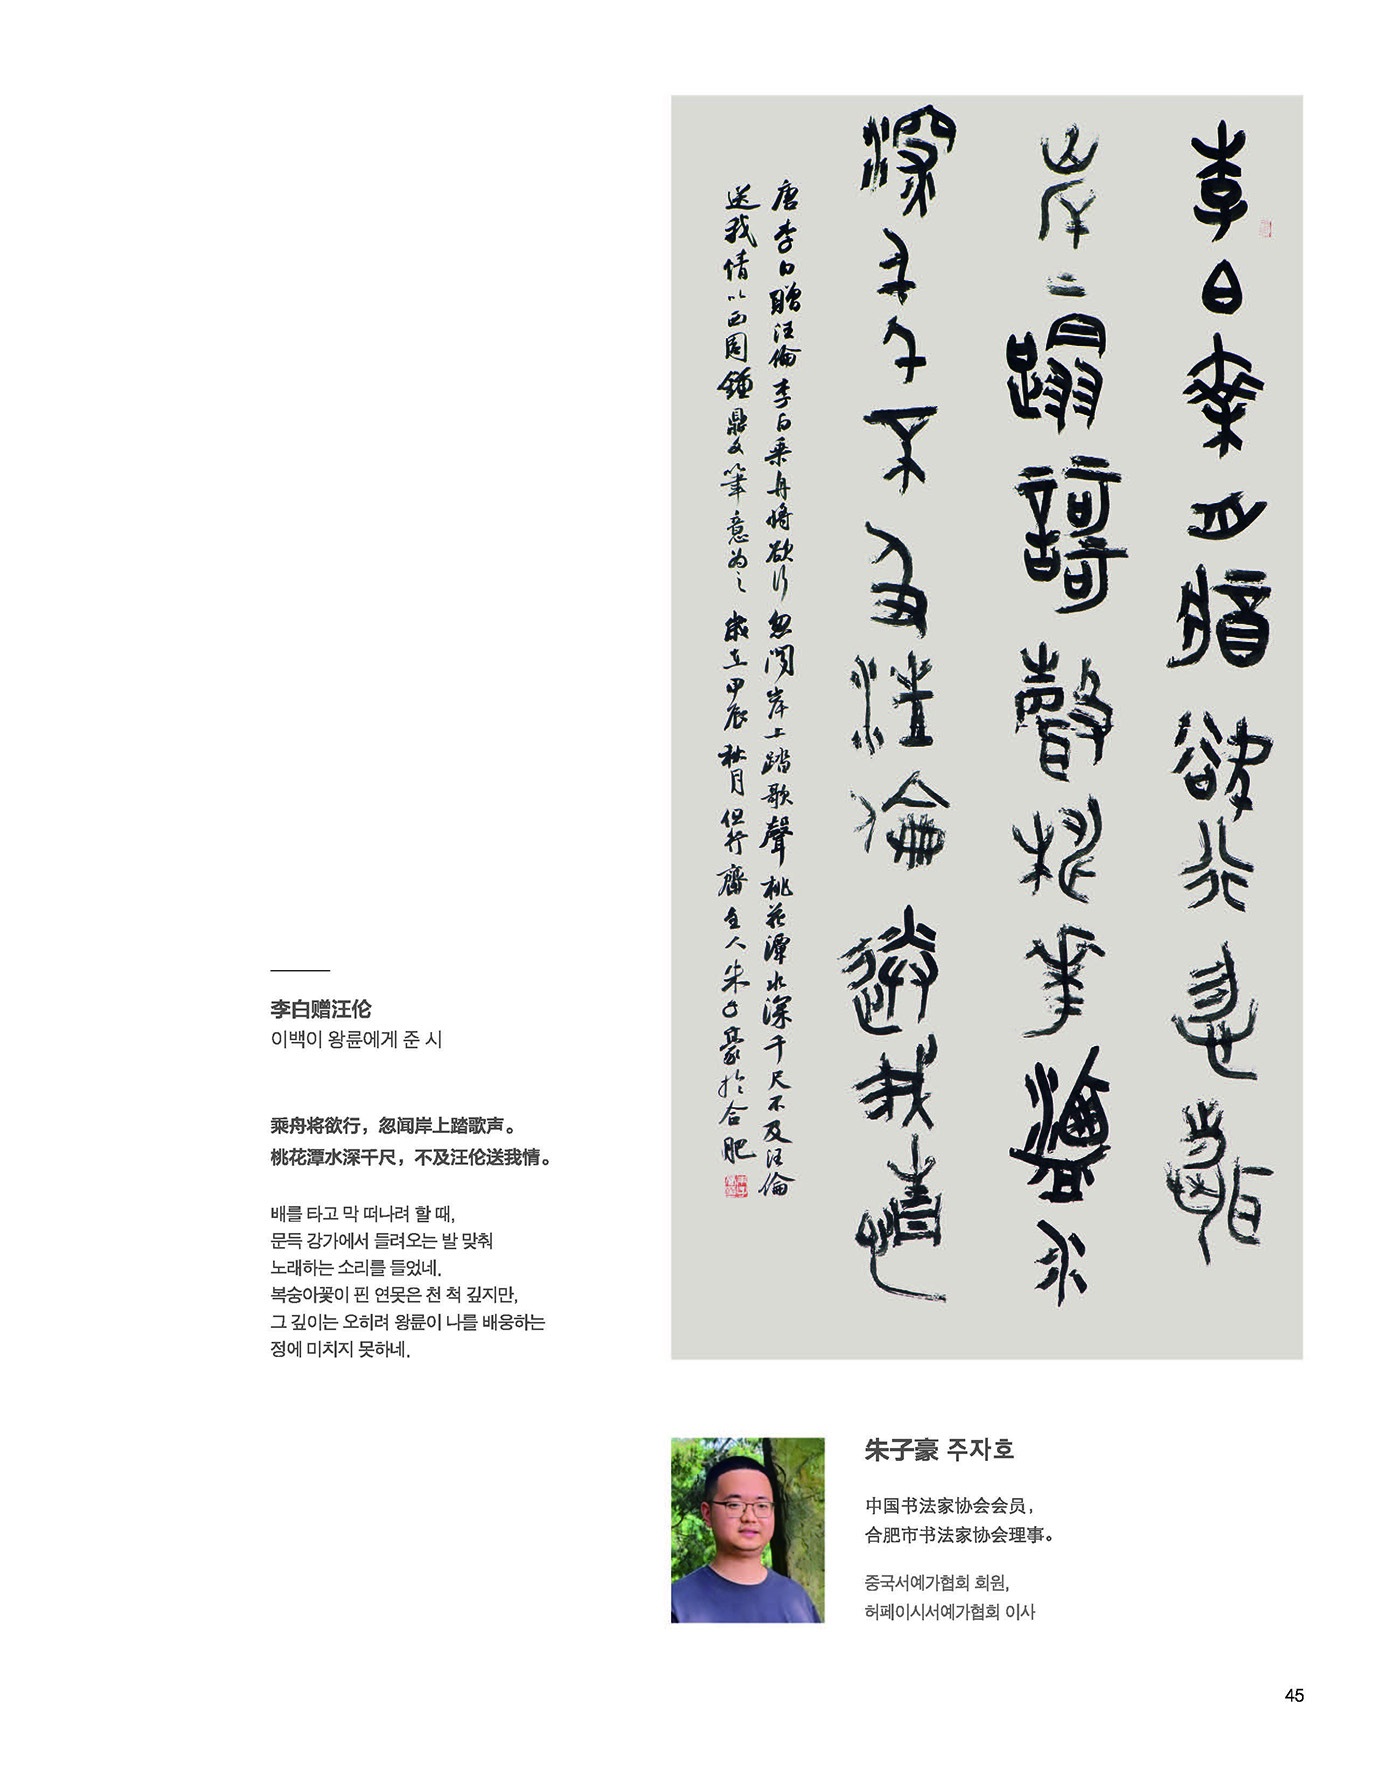 李白乘舟將欲行忽聞
岸上踏歌聲桃花潭水
深千尺不及汪倫送我情
唐李白贈汪倫李白乘舟將欲行忽聞岸上踏歌聲桃花潭水深千尺不及汪倫
送我情以西周鍾鼎文筆意為之歲在甲辰秋月但行齋主人朱子豪於合肥
李白赠汪伦
이백이 왕륜에게 준 시
乘舟将欲行，忽闻岸上踏歌声。
桃花潭水深千尺，不及汪伦送我情。
배를 타고 막 떠나려 할 때,
문득 강가에서 들려오는 발 맞춰
노래하는 소리를 들었네.
복숭아꽃이 핀 연못은 천 척 깊지만,
그 깊이는 오히려 왕륜이 나를 배웅하는
정에 미치지 못하네.
朱子豪 주자호
中国书法家协会会员，
合肥市书法家协会理事。
중국서예가협회 회원,
허페이시서예가협회 이사
45